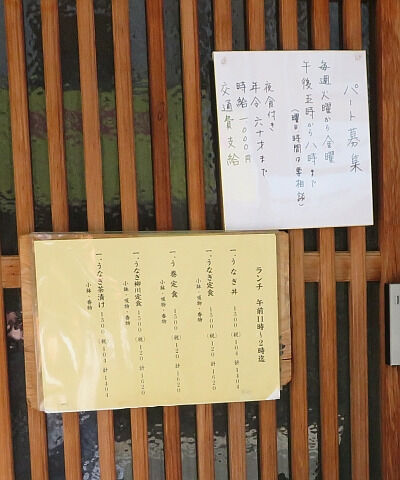 パート募集
毎週火曜から金曜
午後五時から八時まで
(曜日時間は要相談)
夜食付き
年令 六十才まで
時給 1000円
交通費支給
ランチ 午前11時〜2時迄
一、うなぎ丼
1300 (税) 104 計 1404
一、うなぎ定食
小鉢・吸物・香物
1500 (税) 120 計 1620
一、う巻定食
小鉢・吸物・香物
1500 (税) 120 計 1620
一、うなぎ柳川定食
小鉢・吸物・香物
1500 (税) 120 計 1620
一、うなぎ茶漬け
小鉢・香物
1300 (税) 104 計 1404